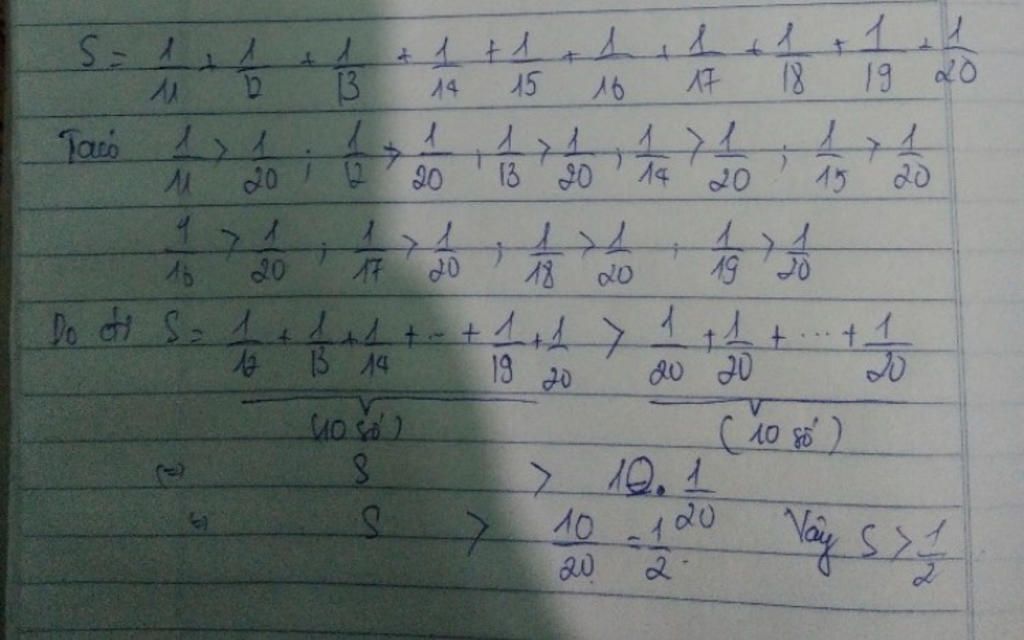 S = 1/11 + 1/12 + 1/13 + 1/14 + 1/15 + 1/16 + 1/17 + 1/18 + 1/19 + 1/20
Ta có 1/11 > 1/20 ; 1/12 > 1/20 ; 1/13 > 1/20 ; 1/14 > 1/20 ; 1/15 > 1/20
1/16 > 1/20 ; 1/17 > 1/20 ; 1/18 > 1/20 ; 1/19 > 1/20
Do đó S = 1/12 + 1/13 + 1/14 + ... + 1/19 + 1/20 > 1/20 + 1/20 + ... + 1/20
(10 số) (10 số)
⇒ S > 10 . 1/20
S > 10/20 = 1/2. Vậy S > 1/2